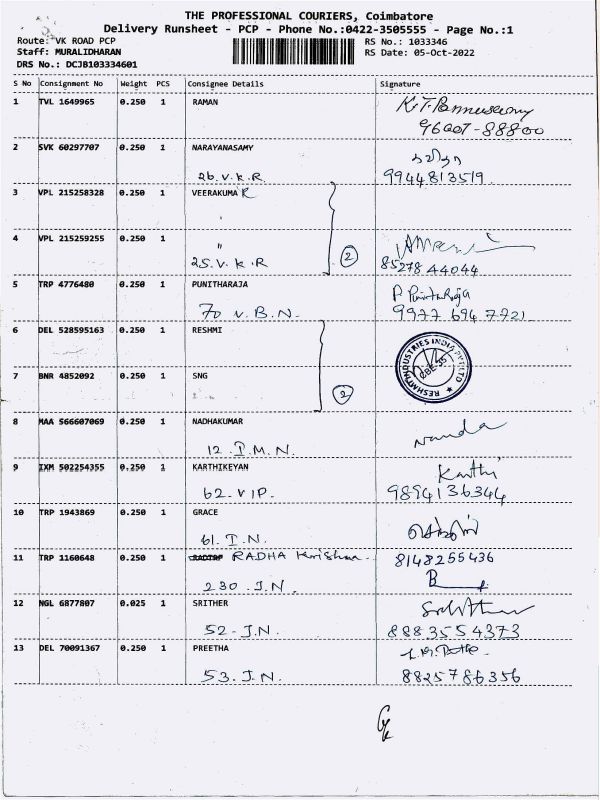 THE PROFESSIONAL COURIERS, Coimbatore
Delivery Runsheet - PCP - Phone No.:0422-3505555 - Page No.:1
Route: VK ROAD PCP RS No.: 1033346
Staff: MURALIDHARAN RS Date: 05-Oct-2022
DRS No.: DCJB103334601
S No Consignment No Weight PCS Consignee Details Signature
1 TVL 1649965 0.250 1 RAMAN
96007-88800
2 SVK 60297707 0.250 1 NARAYANASAMY
26.V.K.R. 9944813519
3 VPL 215258328 0.250 1 VEERAKUMAR
4 VPL 215259255 0.250 1 "
25.V.K.R 2 85278 44044
5 TRP 4776480 0.250 1 PUNITHARAJA P PunithaRaja
70 V.B.N. 9977 694 7721
6 DEL 528595163 0.250 1 RESHMI
7 BNR 4852092 0.250 1 SNG
2
8 MAA 566607069 0.250 1 NADHAKUMAR nanda
12.I.M.N.
9 IXM 502254355 0.250 1 KARTHIKEYAN Karthi
62.VIP. 9894136344
10 TRP 1943869 0.250 1 GRACE
61.I.N.
11 TRP 1160648 0.250 1 RADHA Krishna. 8148255436
230.J.N.
12 NGL 6877807 0.025 1 SRITHER
52-J.N. 8883554373
13 DEL 70091367 0.250 1 PREETHA
53.J.N. 8825786356